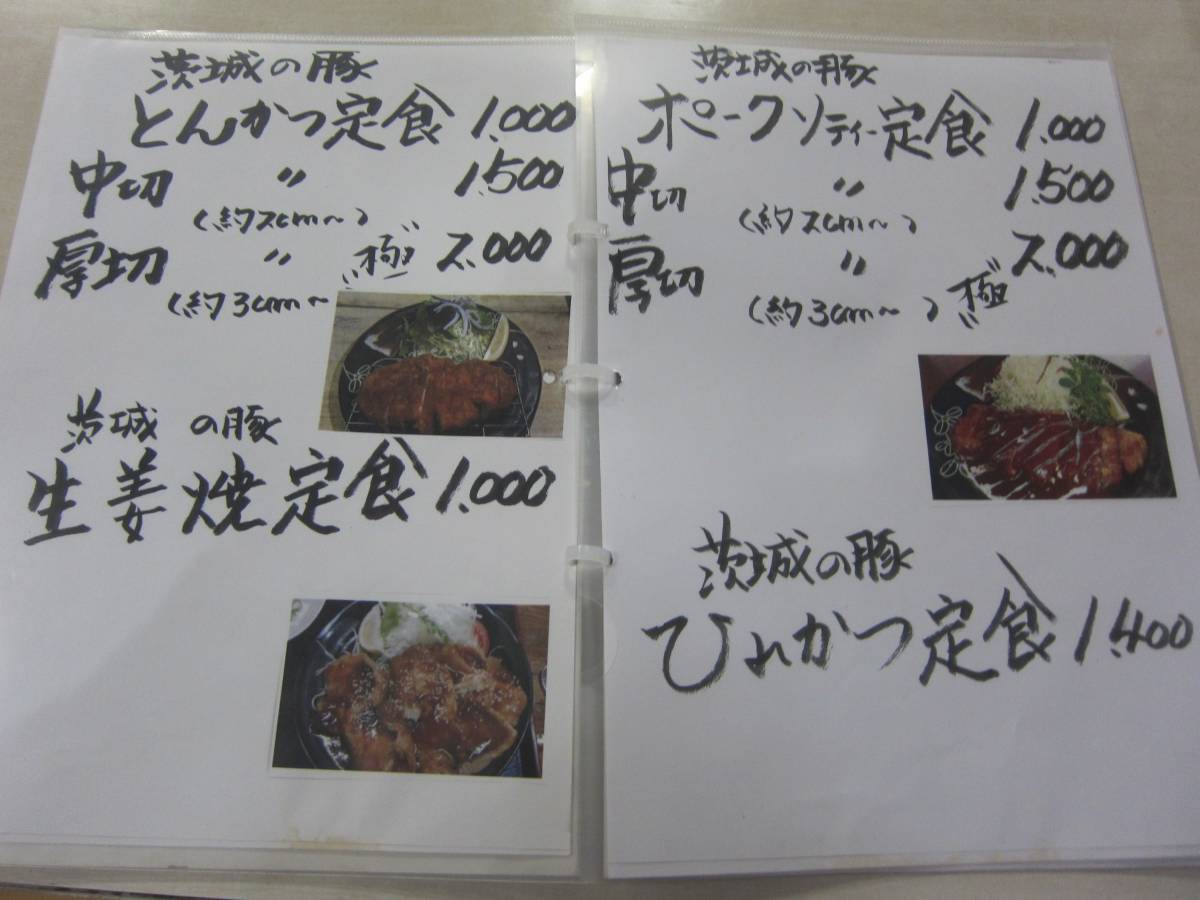 茨城の豚
とんかつ定食 1.000
中切 〃 1.500
(約2cm〜)
厚切 〃 極 2.000
(約3cm〜
茨城 の豚
生姜焼定食 1.000
茨城の豚
ポークソティー定食 1.000
中切 〃 1.500
(約2cm〜)
厚切 〃 2.000
(約3cm〜) 極
茨城の豚
ひれかつ定食 1.400